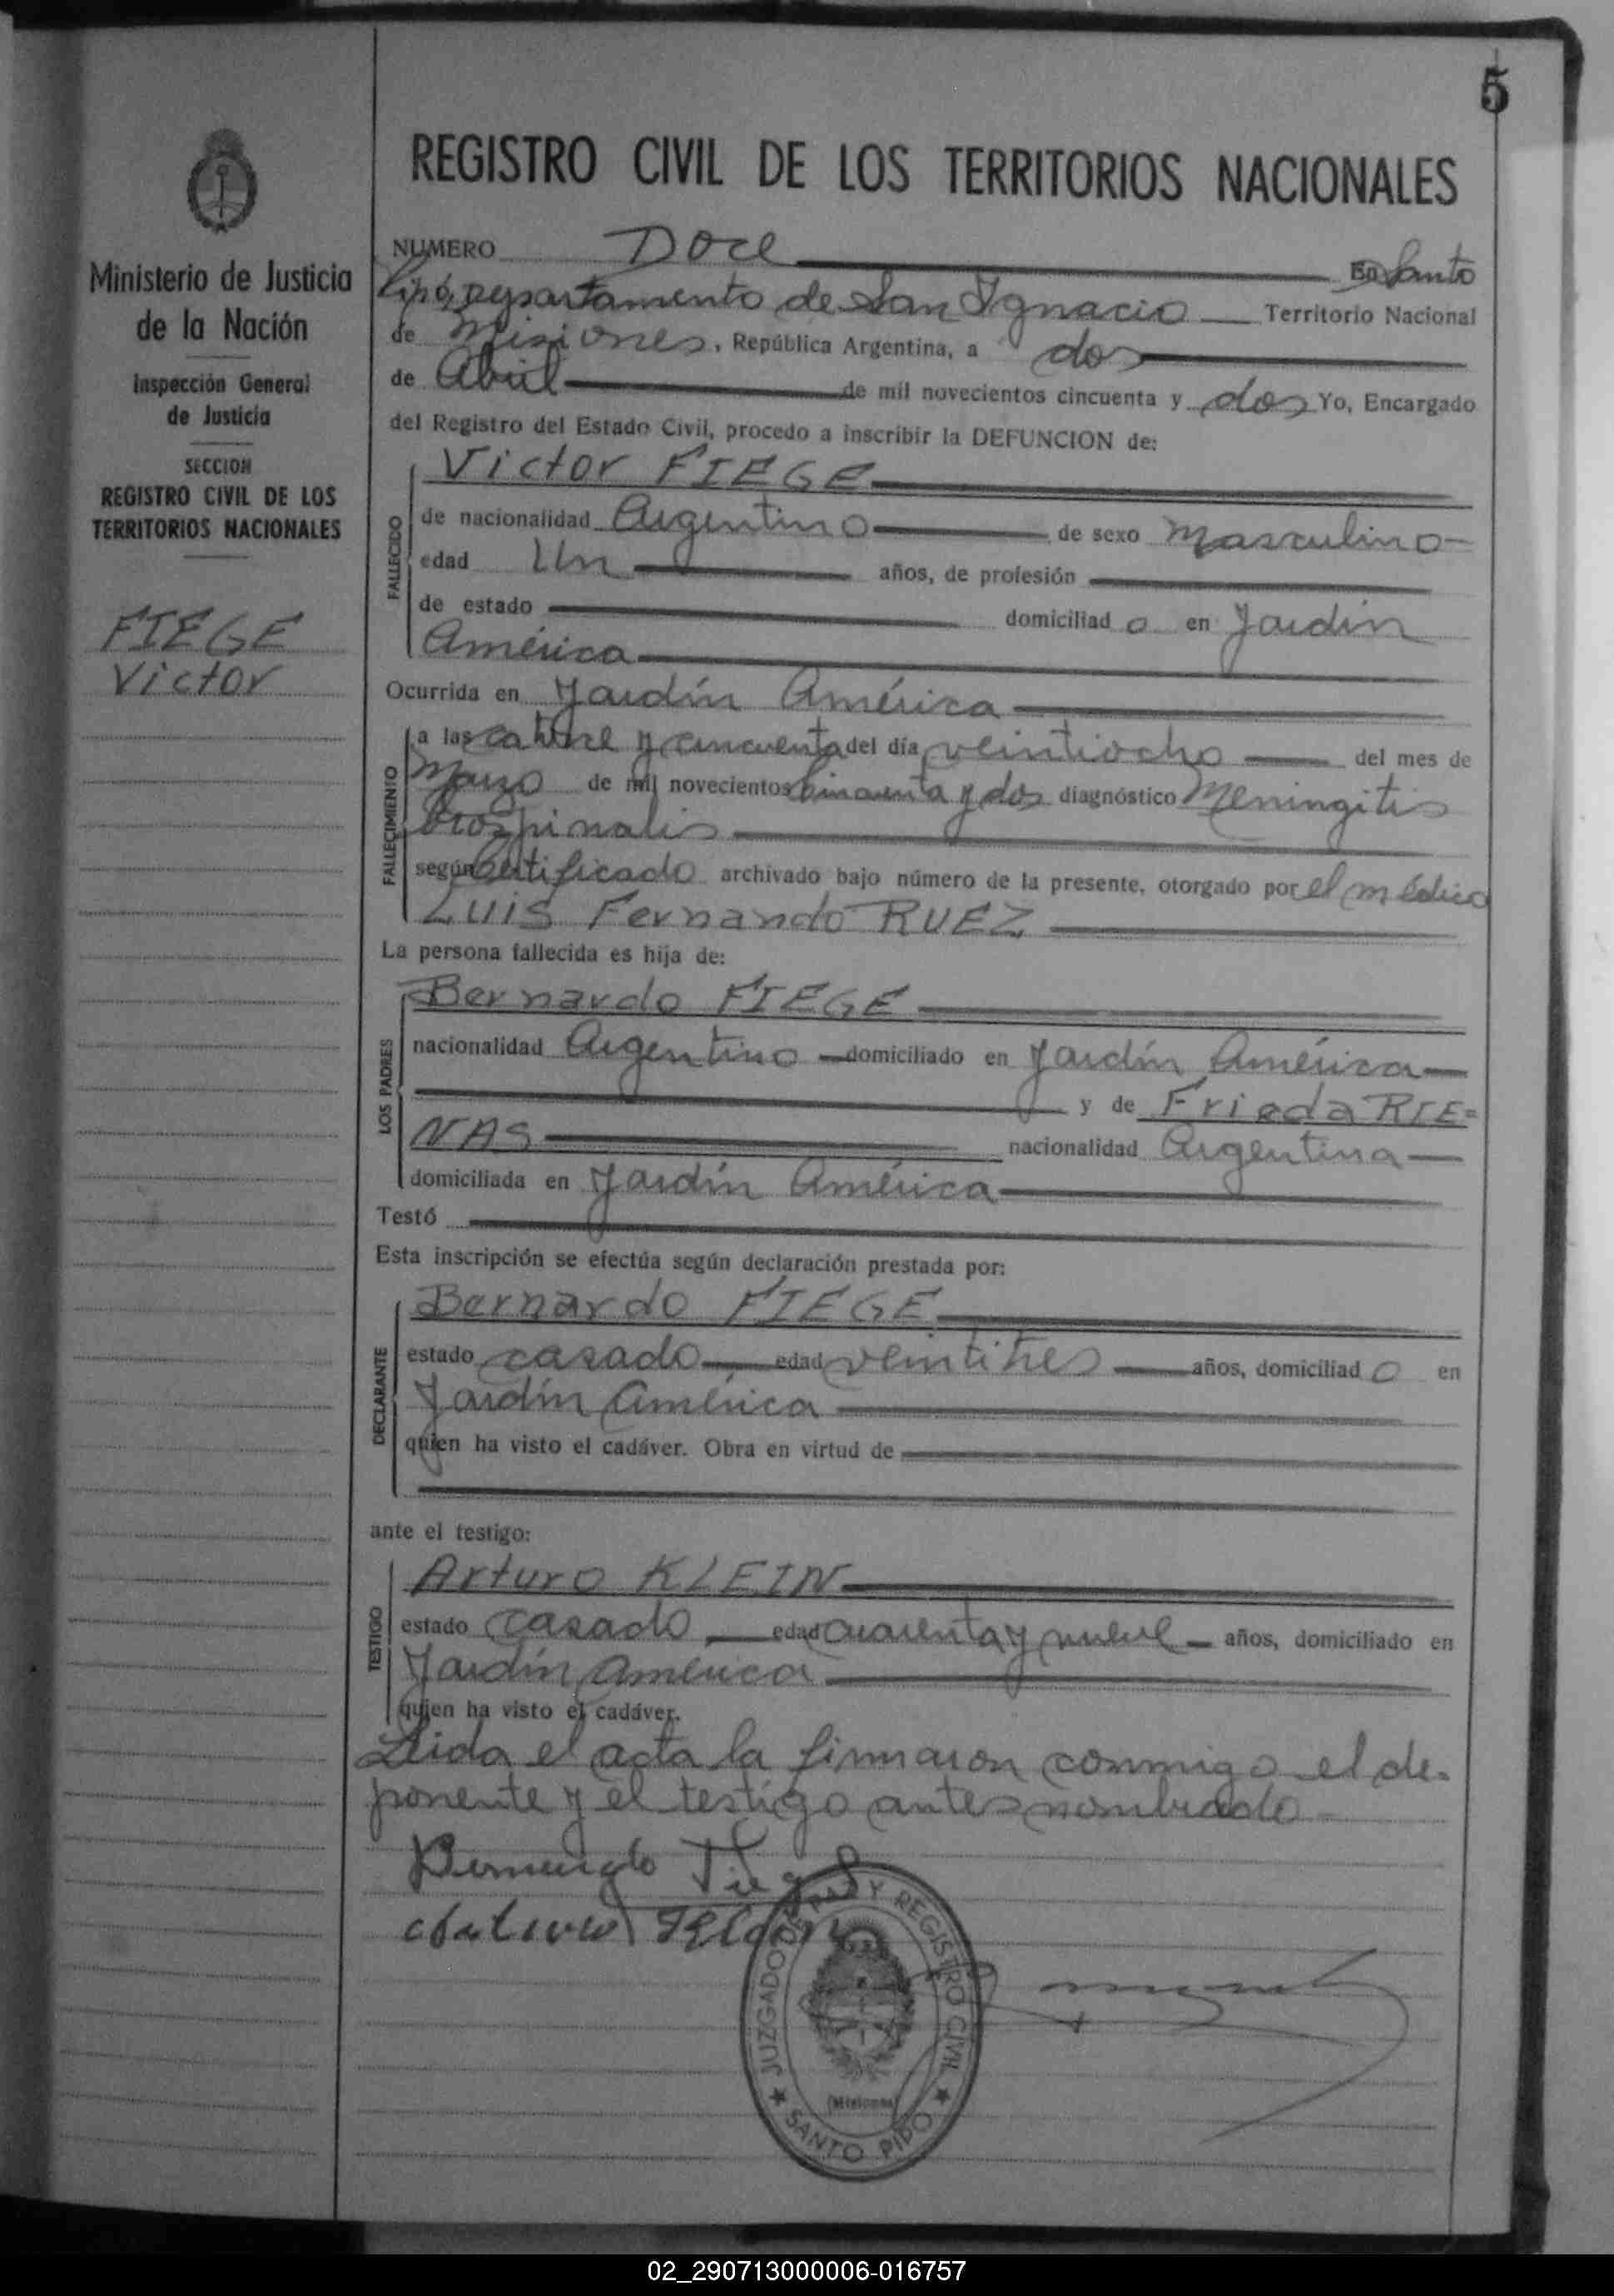 5
REGISTRO CIVIL DE LOS TERRITORIOS NACIONALES
Ministerio de Justicia
de la Nación
Inspección General
de Justicia
SECCION
REGISTRO CIVIL DE LOS
TERRITORIOS NACIONALES
FIEGE
Victor
NUMERO Doce En Santo
Pipó, departamento de San Ignacio Territorio Nacional
de Misiones, República Argentina, a dos
de Abril de mil novecientos cincuenta y dos Yo, Encargado
del Registro del Estado Civil, procedo a inscribir la DEFUNCION de:
FALLECIDO
Victor FIEGE
de nacionalidad Argentino de sexo Masculino
edad Un años, de profesión
de estado domiciliad o en Jardín
América
Ocurrida en Jardín América
FALLECIMIENTO
a las catorce y cincuenta del día veintiocho del mes de
Marzo de mil novecientos Cincuenta y dos diagnóstico Meningitis
según Certificado archivado bajo número de la presente, otorgado por el médico
Luis Fernando RUEZ
La persona fallecida es hija de:
LOS PADRES
Bernardo FIEGE
nacionalidad Argentino domiciliado en Jardín América
y de Frieda RIE=
NAS nacionalidad Argentina
domiciliada en Jardín América
Testó
Esta inscripción se efectúa según declaración prestada por:
DECLARANTE
Bernardo FIEGE
estado casado edad veintitres años, domiciliad o en
Jardín América
quien ha visto el cadáver. Obra en virtud de
ante el testigo:
TESTIGO
Arturo KLEIN
estado Casado edad cuarenta y nueve años, domiciliado en
Jardín América
quien ha visto el cadáver.
Leida el acta la firmaron conmigo el de-
ponente y el testigo antes nombrado
JUZGADO DE PAZ Y REGISTRO CIVIL
(Misiones)
SANTO PIPO
02_290713000006-016757